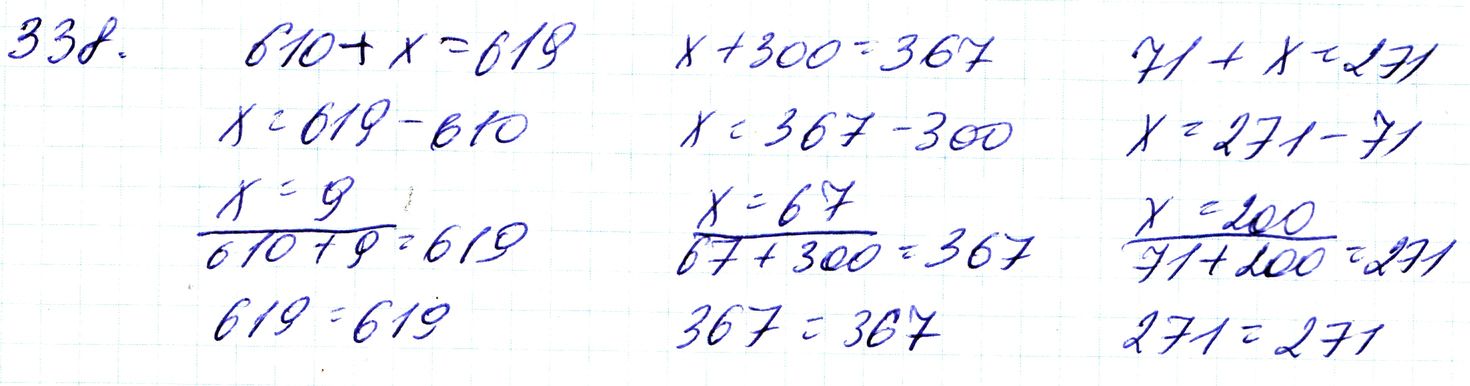 338. 610 + x = 619 x + 300 = 367 71 + x = 271
x = 619 - 610 x = 367 - 300 x = 271 - 71
x = 9 x = 67 x = 200
610 + 9 = 619 67 + 300 = 367 71 + 200 = 271
619 = 619 367 = 367 271 = 271